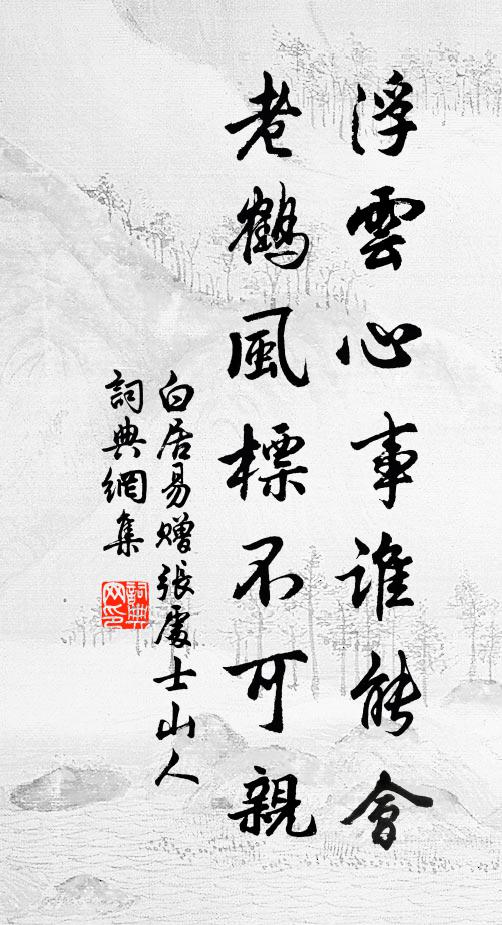 浮雲心事誰能會
老鶴風標不可親
白居易贈張處士山人
詞典網集
詞典
网印